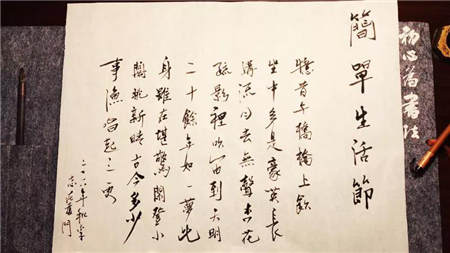 簡單生活節
憶昔午橋橋上飲
坐中多是豪英長
溝流月去無聲杏花
疏影裡吹笛到天明
二十餘年如一夢此
身雖在堪驚閒登小
閣眺新晴古今多少
事漁唱起三更
初心